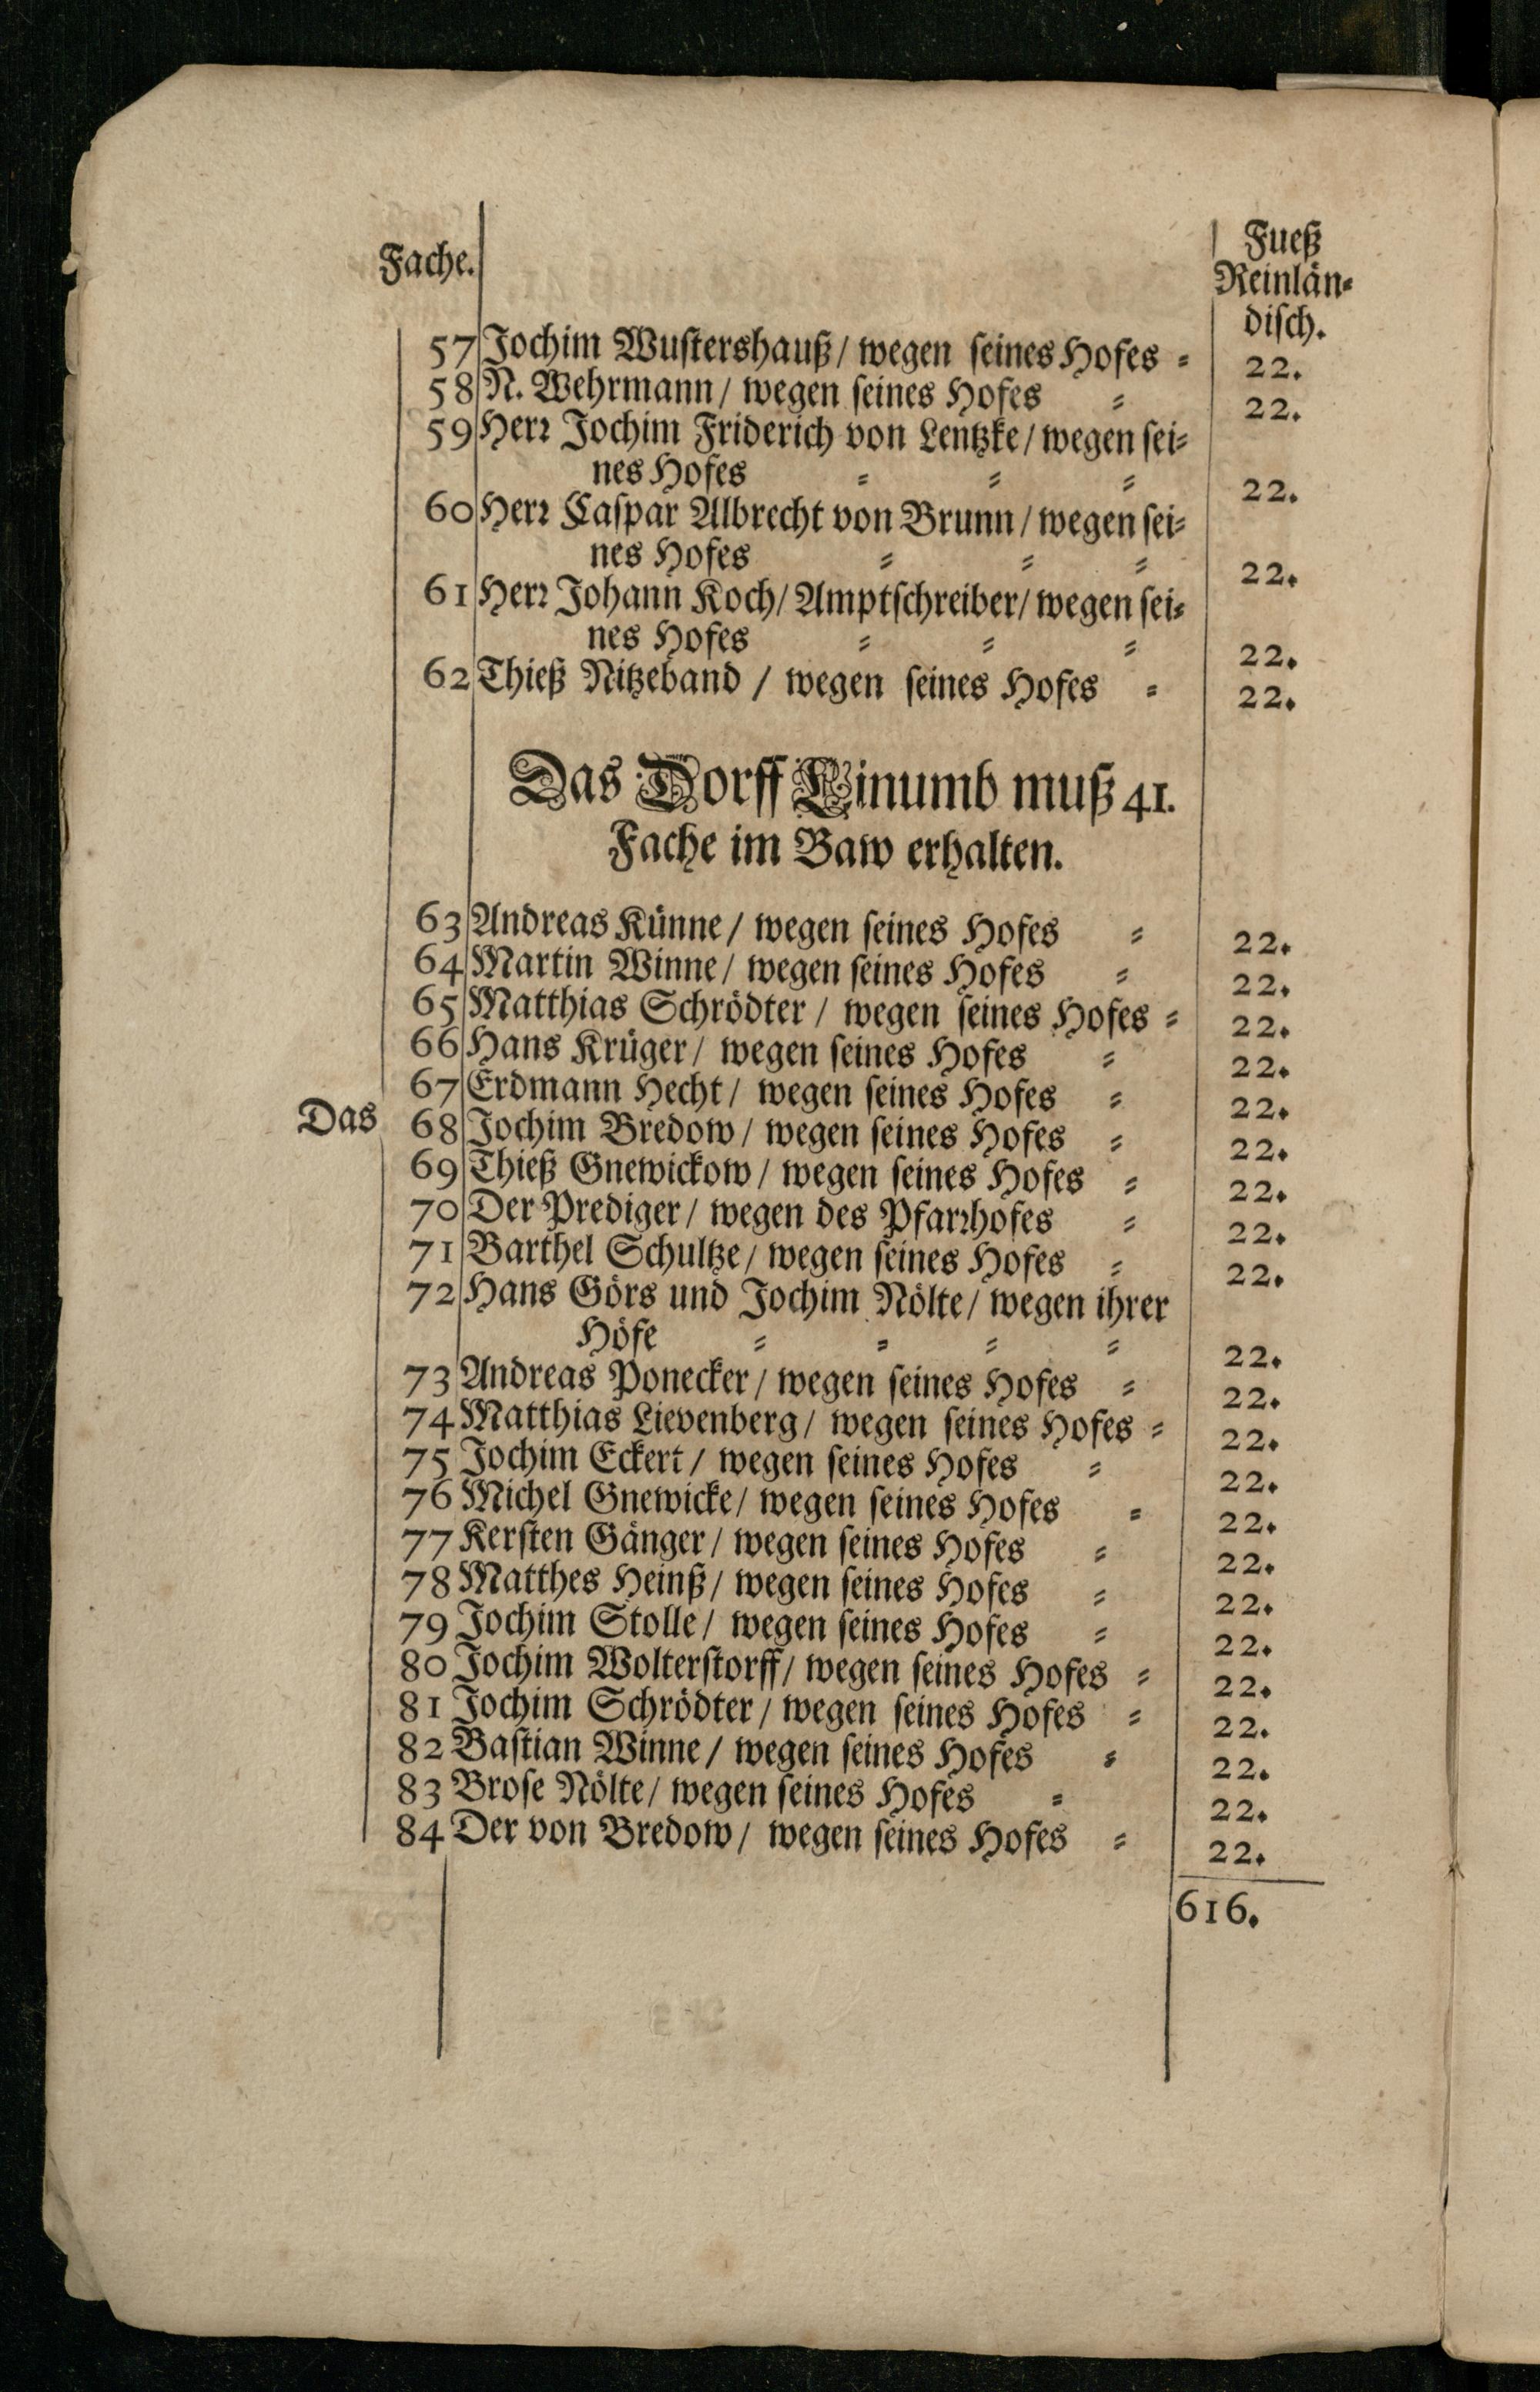 Fache.
Fueß
Reinlän-
disch.
57 Jochim Wustershauß/ wegen seines Hofes = 22.
58 N. Wehrmann/ wegen seines Hofes = 22.
59 Herr Jochim Friderich von Lentzke/ wegen sei-
nes Hofes = = = 22.
60 Herr Caspar Albrecht von Brunn/ wegen sei-
nes Hofes = = = 22.
61 Herr Johann Koch/ Amptschreiber/ wegen sei-
nes Hofes = = = 22.
62 Thieß Nitzeband / wegen seines Hofes = 22.
Das Dorff Linumb muß 41.
Fache im Baw erhalten.
63 Andreas Künne/ wegen seines Hofes = 22.
64 Martin Winne/ wegen seines Hofes = 22.
65 Matthias Schrödter / wegen seines Hofes = 22.
66 Hans Krüger/ wegen seines Hofes = 22.
67 Erdmann Hecht/ wegen seines Hofes = 22.
Das
68 Jochim Bredow/ wegen seines Hofes = 22.
69 Thieß Gnewickow/ wegen seines Hofes = 22.
70 Der Prediger/ wegen des Pfarrhofes = 22.
71 Barthel Schultze/ wegen seines Hofes = 22.
72 Hans Görs und Jochim Nölte/ wegen ihrer
Höfe = = = = 22.
73 Andreas Ponecker/ wegen seines Hofes = 22.
74 Matthias Lievenberg/ wegen seines Hofes = 22.
75 Jochim Eckert/ wegen seines Hofes = 22.
76 Michel Gnewicke/ wegen seines Hofes = 22.
77 Kersten Gänger/ wegen seines Hofes = 22.
78 Matthes Heinß/ wegen seines Hofes = 22.
79 Jochim Stolle/ wegen seines Hofes = 22.
80 Jochim Wolterstorff/ wegen seines Hofes = 22.
81 Jochim Schrödter/ wegen seines Hofes = 22.
82 Bastian Winne/ wegen seines Hofes = 22.
83 Brose Nölte/ wegen seines Hofes = 22.
84 Der von Bredow/ wegen seines Hofes = 22.
616.